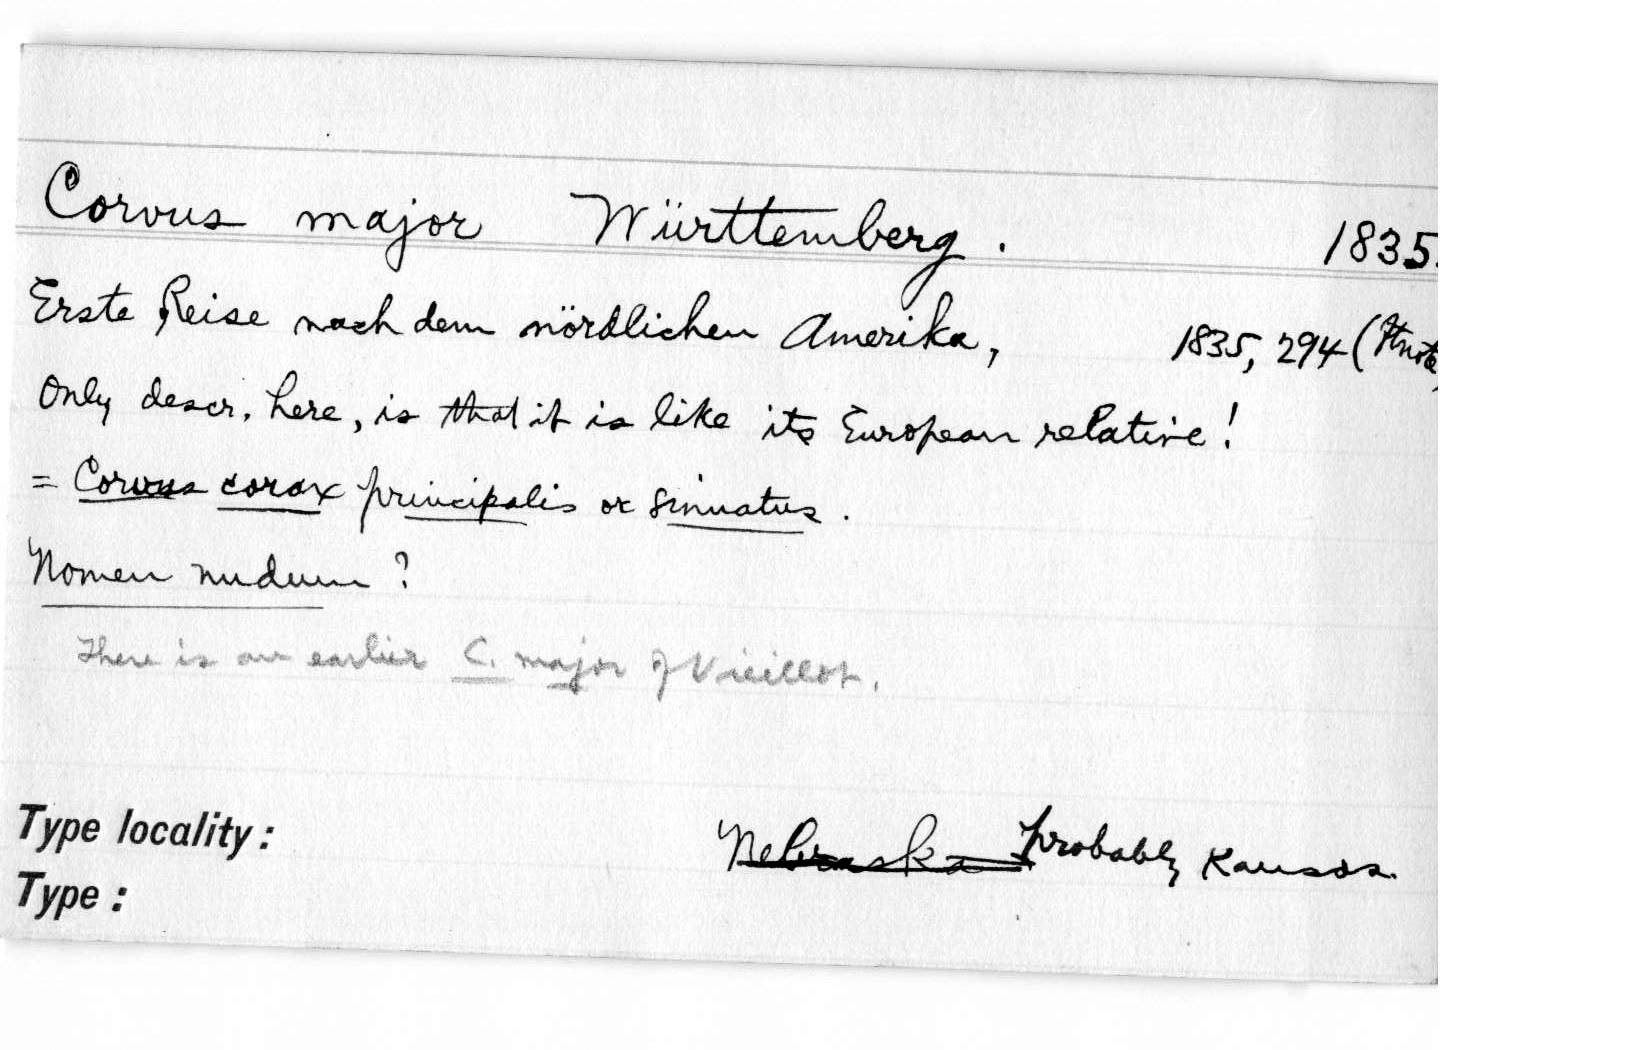 Corvus major Württemberg. 1835.
Erste Reise nach dem nördlichen Amerika, 1835, 294 (ftnote)
Only descr. here, is that it is like its European relative!
= Corvus corax principalis or sinuatus.
Nomen nudum?
There is an earlier C. major of Vieillot.
Type locality: Nebraska probably Kansas.
Type: